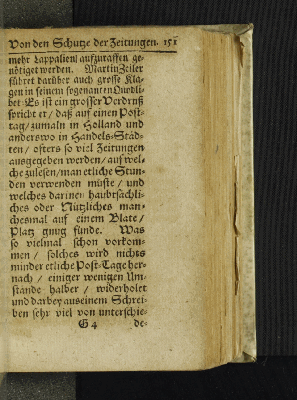 Von den Schutze der Zeitungen. 151
mehr Lappalien) aufzuraffen ge-
nötiget werden. Martin Zeiler
führet darüber auch grosse Kla-
gen in seinem sogenanten Quodli-
bet. Es ist ein grosser Verdruß
spricht er / daß auf einen Post-
tag / zumaln in Holland und
anderswo in Handels-Städ-
ten / öfters so viel Zeitungen
ausgegeben werden / auf wel-
che zulesen / man etliche Stun-
den verwenden müste / und
welches darinen haubtsächli-
ches oder Nützliches man-
chesmal auf einem Blate /
Platz gnug fünde. Was
so vielmal schon vorkom-
men / solches wird nichts
minder etliche Post-Tage her-
nach / einiger wenigen Um-
stände halber / widerholet
und darbey aus einem Schrei-
ben sehr viel von unterschie-
G 4 de-